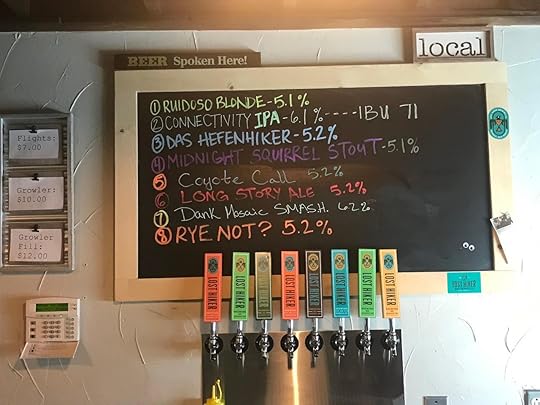 BEER Spoken Here!
local
① RUIDOSO BLONDE-5.1%
② CONNECTIVITY IPA-6.1%----IBU 71
③ DAS HEFENHIKER-5.2%
④ MIDNIGHT SQUIRREL STOUT-5.1%
⑤ Coyote Call 5.2%
⑥ LONG STORY ALE 5.2%
⑦ Dank Mosaic SMASH. 6.2%
⑧ RYE NOT? 5.2%
Flights:
$7.00
Growler:
$10.00
Growler
Fill:
$12.00
LOST HIKER
LOST HIKER
LOST HIKER
LOST HIKER
LOST HIKER
LOST HIKER
LOST HIKER
LOST HIKER
LOST HIKER